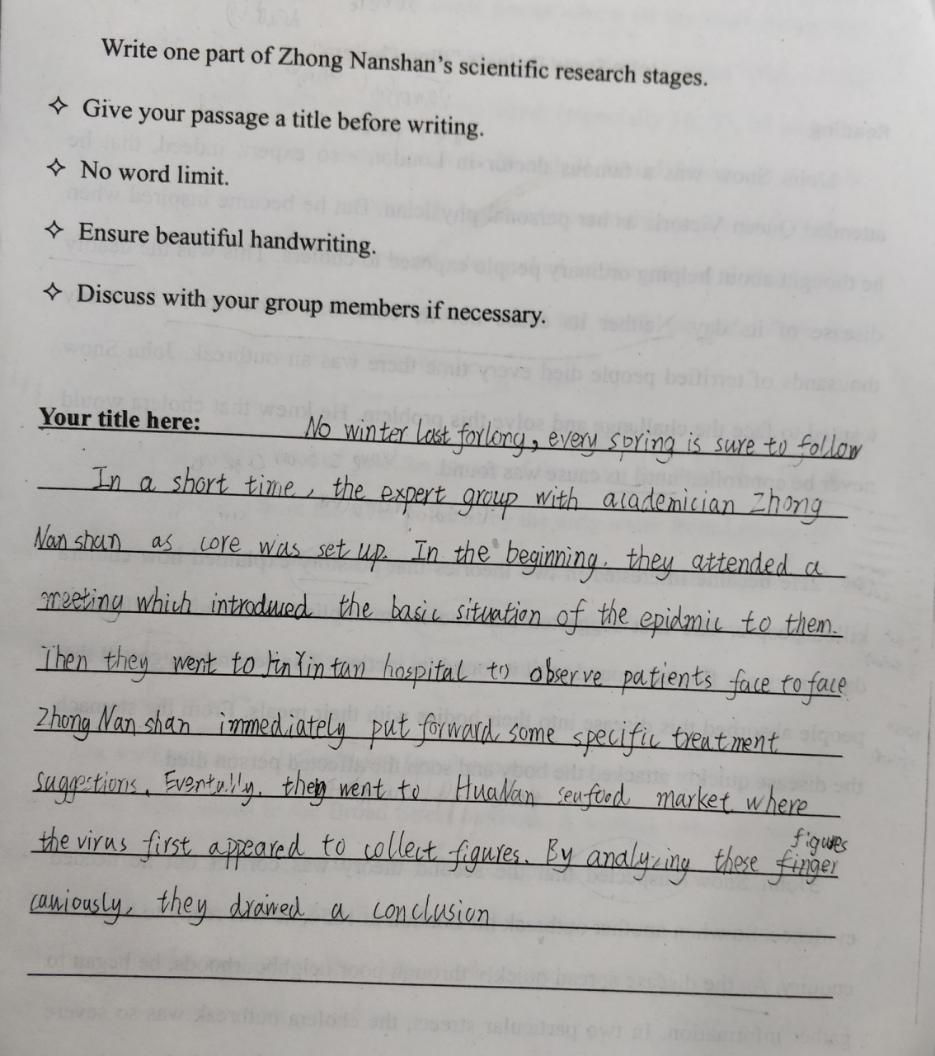 Write one part of Zhong Nanshan's scientific research stages.
✧ Give your passage a title before writing.
✧ No word limit.
✧ Ensure beautiful handwriting.
✧ Discuss with your group members if necessary.
Your title here: No winter last forlong, every spring is sure to follow
In a short time, the expert group with academician Zhong
Nan shan as core was set up. In the beginning, they attended a
meeting which introduced the basic situation of the epidmic to them.
Then they went to JinYin tan hospital to observe patients face to face
Zhong Nan shan immediately put forward some specific treatment
suggestions. Eventually, they went to HuaNan seafood market where
the virus first appeared to collect figures. By analyzing these finger
figures
cauiously, they drawed a conclusion